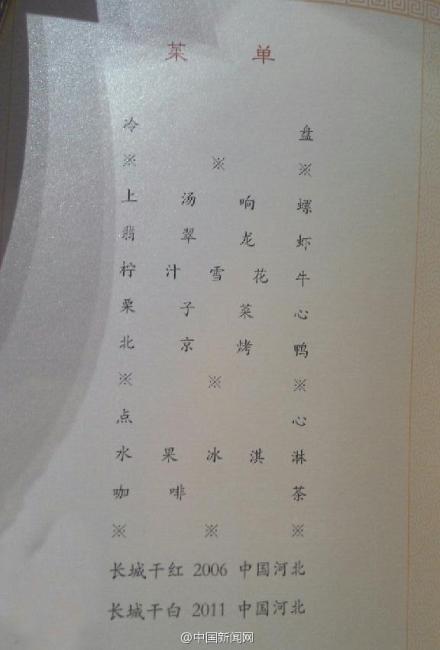 菜 单
冷 盘
※ ※ ※
上 汤 响 螺
翡 翠 龙 虾
柠 汁 雪 花 牛
栗 子 菜 心
北 京 烤 鸭
※ ※ ※
点 心
水 果 冰 淇 淋
咖 啡 茶
※ ※ ※
长城干红 2006 中国河北
长城干白 2011 中国河北
@中国新闻网